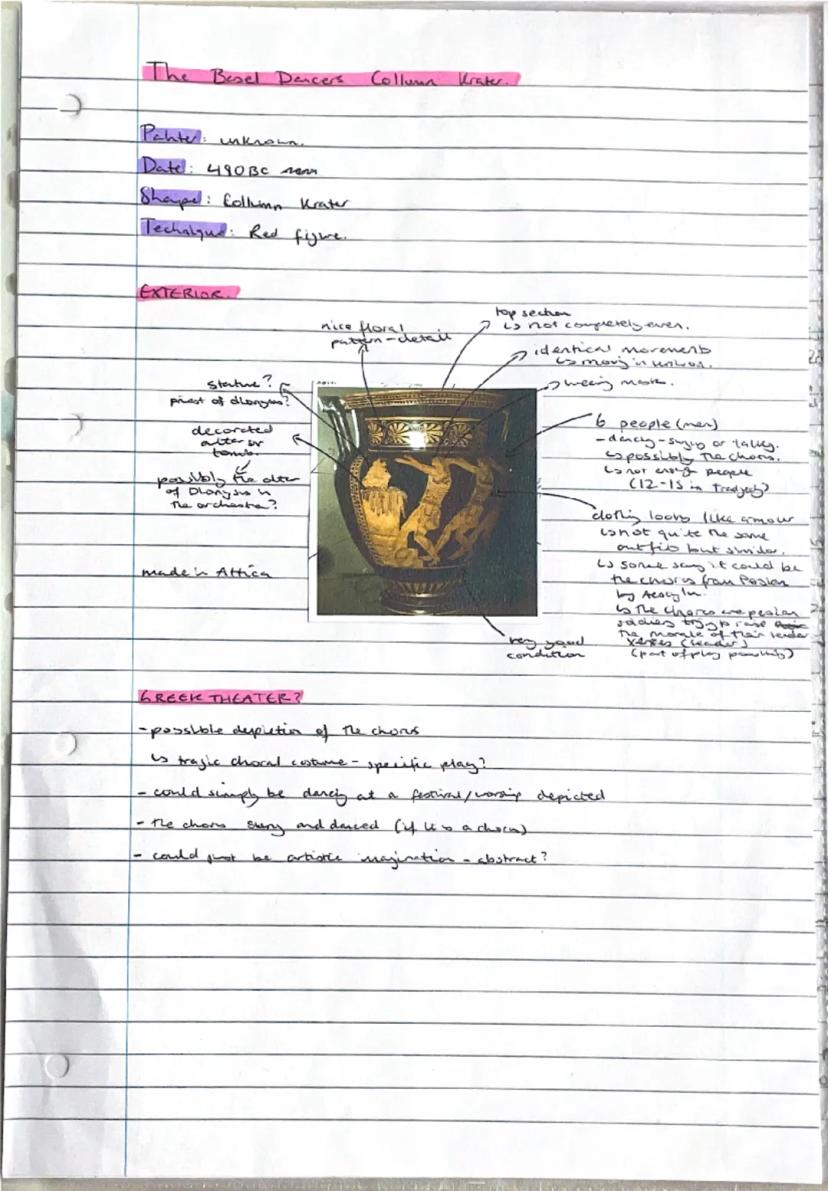 The Basel Dancers Collumn Krater.
Painter: unknown.
Date: 490BC
Shape: Collumn Krater
Technique: Red figure.
EXTERIOR.
top section
↳ not completely even.
nice floral
pattern - detail
identical movements
↳ moving in unison.
wearing mask.
statue?
priest of dionysus?
decorated
alter or
tomb.
possibly the alter
of Dionysus in
the orchestra?
6 people (men)
- dancing - singing or talking.
↳ possibly the chorus.
↳ not enough people
(12-15 in Tradgedy)
clothing looks like armour
↳ not quite the same
outfits but similar.
↳ some say it could be
the chorus from Persian
by
↳ the chorus are persian
soldiers trying to raise
the morale of their leader
Xerxes (leader)
(part of play possibly)
made in Attica
very good
condition
GREEK THEATER?
- possible depiction of the chorus
↳ tragic choral costume - specific play?
- could simply be dancing at a festival/worship depicted
- the chorus sung and danced (if it is a chorus)
- could just be artistic imagination - abstract?